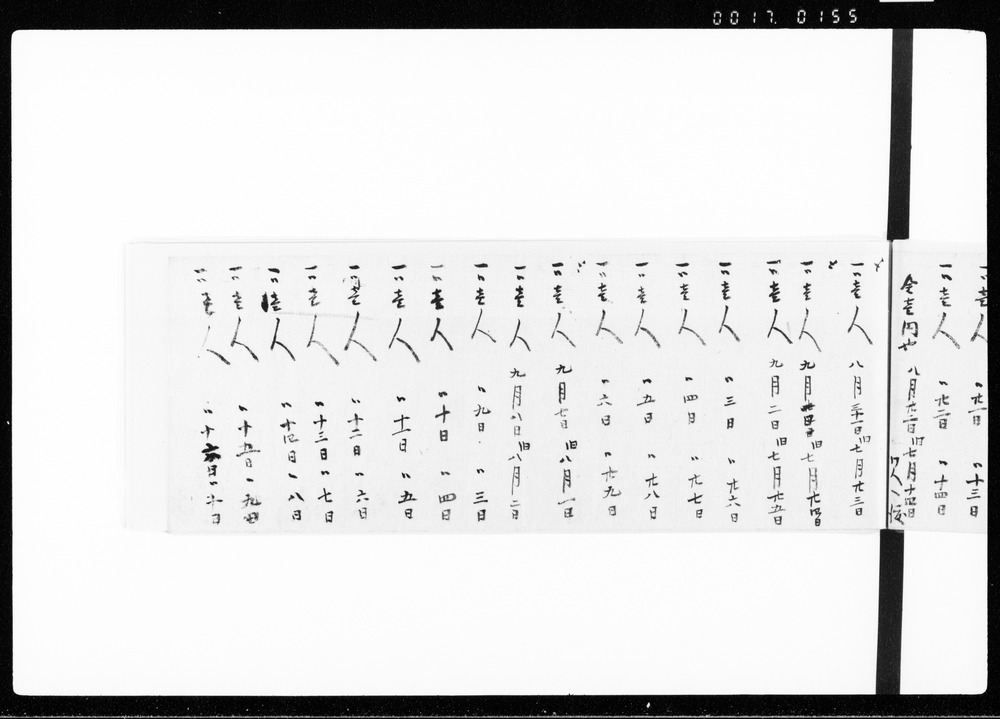 0017. 0155
一〃壱人 〃廿一日 〃十三日
一〃壱人 〃廿二日 〃十四日
金壱円也 八月廿二日旧七月十四日
一〃壱人 八月三十一日旧七月廿三日
一〃壱人 九月一日旧七月廿四日
一〃壱人 九月二日旧七月廿五日
一〃壱人 〃三日 〃廿六日
一〃壱人 〃四日 〃廿七日
一〃壱人 〃五日 〃廿八日
一〃壱人 〃六日 〃廿九日
一〃壱人 九月七日旧八月一日
一〃壱人 九月八日旧八月二日
一〃壱人 〃九日 〃三日
一〃壱人 〃十日 〃四日
一〃壱人 〃十一日 〃五日
一〃壱人 〃十二日 〃六日
一〃壱人 〃十三日 〃七日
一〃壱人 〃十四日 〃八日
一〃壱人 〃十五日 〃九日
一〃壱人 〃十六日 〃十日